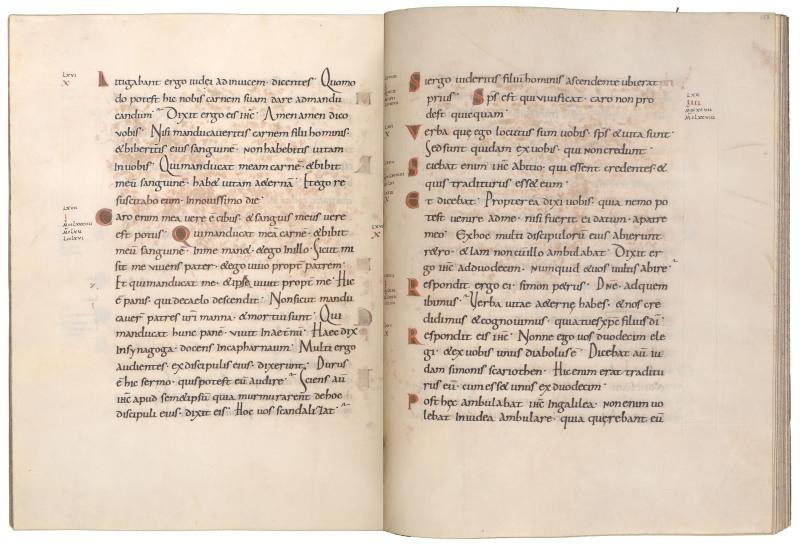 LXVI
X
Litigabant ergo iudęi adinuicem· dicentes· Quomo
do potest hic nobis carnem suam dare admandu
candum· Dixit ergo eis ihc̄· Amen amen dico
uobis· Nisi manducaueritis carnem filii hominis·
&biberitis eius sanguinē· non habebitis uitam
inuobis· Quimanducat meam carnē· &bibit
meū sanguinē· hab& uitam aeternā· Etego re
suscitabo eum· innouissimo die·
LXVII
I
Caro enim mea uere ē cibus· & sanguis meus uere
est potus· Quimanducat meā carnē· &bibit
meū sanguinē· Inme man&· &ego inillo· Sicut mi
sit me uiuens pater· &ego uiuo propt̄ patrem·
Et quimanducat me· &ipse uiuit propt̄ me· Hic
ē panis· qui decaelo descendit· Nonsicut mandu
cauer̄ patres urī manna· &mortui sunt· Qui
manducat hunc panē· uiuit Inaetnū· Haec dix
Insynagoga· docens incapharnaum· Multi ergo
audientes· exdiscipulis eius· dixerunt· Durus
ē hic sermo· quispotest eū audire· Sciens aū
ihc̄ apud sem&ipsū quia murmurarent dehoc
discipuli eius· dixit eis· Hoc uos scandalizat·
Siergo uideritis filiū hominis ascendente ubierat
prius· Sps̄ est qui uiuificat· caro non pro
dest quicquam·
Verba quę ego locutus sum uobis· sps̄ &uita sunt·
Sedsunt quidam exuobis· qui noncredunt·
Sciebat enim ihc̄ abitio· qui essent credentes· &
quis traditurus ess& eum·
Et dicebat· Propterea dixi uobis· quia nemo po
test uenire adme· nisi fuerit ei datum· apatre
meo· Exhoc multi discipulorū eius abierunt
r&ro· &iam noncūillo ambulabat· Dixit er
go ihc̄ adduodecim· Numquid &uos uultis abire·
Respondit ergo ei· simon p&rus· Dnē· adquem
ibimus· Verba uitae aeternę habes· &nos cre
didimus &cognouimus· quia tu es xpc̄ filius dī·
Respondit eis ihc̄· Nonne ego uos duodecim ele
gi· &exuobis unus diabolus ē· Dicebat aū iu
dam simonis scariothen· Hic enim erat traditu
rus eū· cum ess& unus exduodecim·
Post hęc ambulabat ihc̄ Ingalilea· non enim uo
lebat Iniudea ambulare· quia quęrebant eū